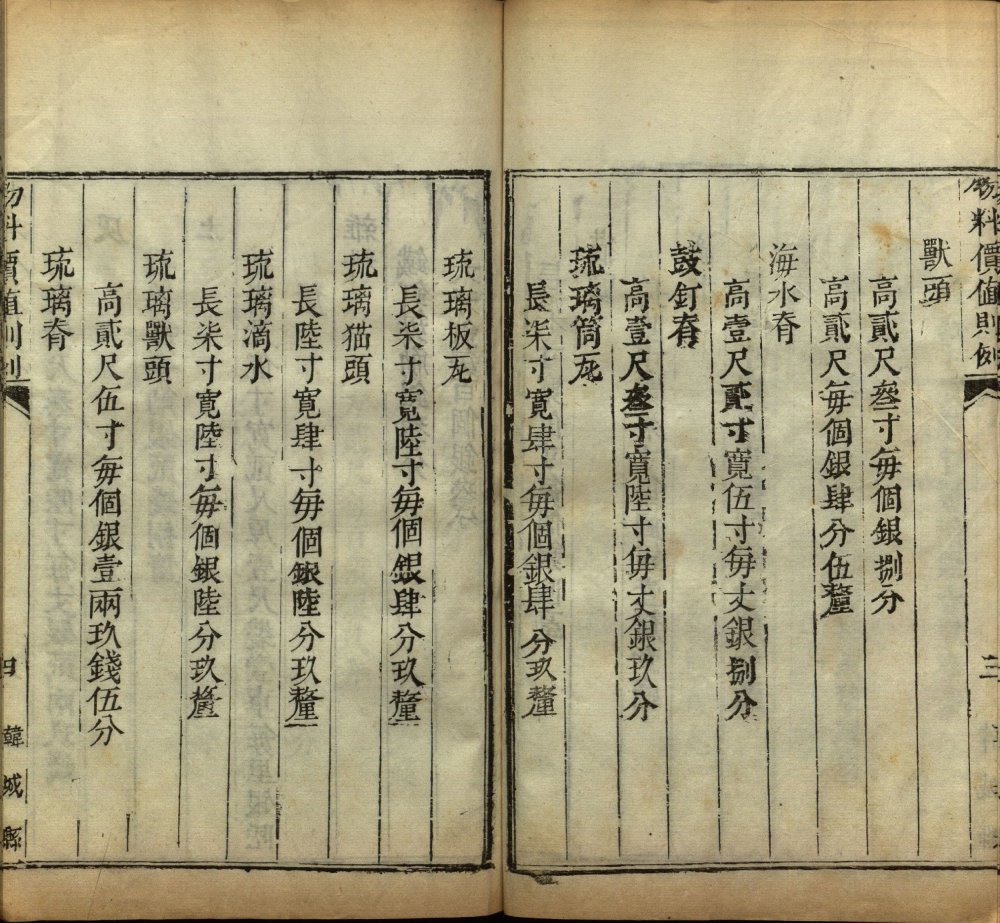 物料價值則例
三
獸頭
高貳尺叁寸每個銀捌分
高貳尺每個銀肆分伍釐
海水脊
高壹尺貳寸寬伍寸每丈銀捌分
鼓釘脊
高壹尺叁寸寬陸寸每丈銀玖分
琉璃筒瓦
長柒寸寬肆寸每個銀肆分玖釐
琉璃板瓦
長柒寸寬陸寸每個銀肆分玖釐
琉璃猫頭
長陸寸寬肆寸每個銀陸分玖釐
琉璃滴水
長柒寸寬陸寸每個銀陸分玖釐
琉璃獸頭
高貳尺伍寸每個銀壹兩玖錢伍分
琉璃脊
物料價值則例
四
韓城縣